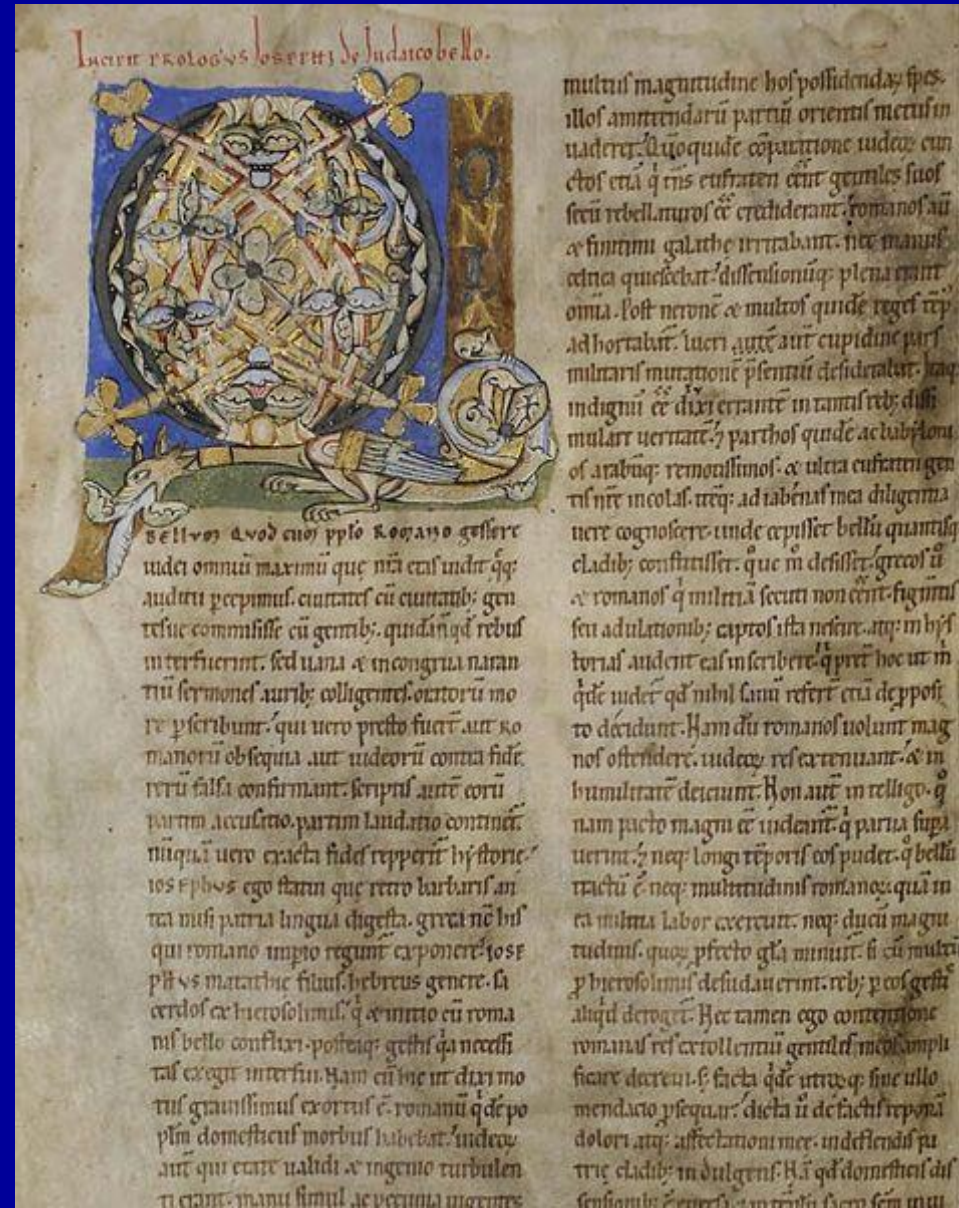 Incipit prologus Iosephi de Iudaico bello.
QVONIA
bellum quod cum pplo Romano gessere
iudei omniū maximū que nr̄a etas uidit. q̄q;
auditu p̄cepimus. ciuitates cū ciuitatib; gen
tesue commisisse cū gentib;. quidā n̄ qd rebus
interfuerint. sed uana & incongrua narran
tiū sermones aurib; colligentes. oratorū mo
re p̄scribunt. qui uero presto fuer̄t. aut Ro
manorū obsequia aut iudeorū contra fidē
rerū falsa confirmant. scriptis autē eorū
partim accusatio. partim laudatio continet̄.
nūquā uero exacta fides repperit̄ hystorie.
iosephus ego statui que retro barbaris an
tea misi patria lingua digesta. greca nc̄ his
qui romano imp̄io regunt̄ exponere. iose
phus matathie filius. hebreus genere. sa
cerdos ex hierosolimis. q̄ & initio cū roma
nis bello conflixi. posteaq; gestis q̄a necessi
tas exegit interfui. Nam cū hic ut dixi mo
tus grauissimus exortus ē. romanū q̄de po
plm domesticus morbus habebat. iudeoꝝ
aut qui etate ualidi & ingenio turbulen
ti erant. manu simul ac pecunia uigentes
multus magnitudine hos possidendaꝝ spes.
illos amittendarū partiū orientis metus in
uaderet. Quoquide cōparatione iudeoꝝ cun
ctos etiā q̄ trans eufraten eēnt gentiles suos
secū rebellaturos eē crediderant. romanos aū
& finitimi galathe irritabant. nec manus
celtica quiescebat. dissensionūq; plena erant
omnia. Post neronē & multos quidē reges tēp
adhortabat̄. lucri autē aut cupidine pars
militaris mutationē p̄sentiū desiderabat. Itaq;
indignū eē duxi errante in tantis reb; dissi
mulare ueritatē. & parthos quidē ac babiloni
os arabūq; remotissimos. & ultra eufraten gen
tis nr̄e incolas. iteq; adiabenas mea diligentia
uere cognoscere. unde cepisset bellū quantisq;
cladib; constitisset. que m̄ desisset. grecos ū
& romanos q̄ militiā secuti non eēnt. figmtis
seu adulationib; captos ista nescire. atq; in hys
torias audent eas inscribere. q̄ pret̄ hoc ut m̄
q̄de uidet̄ qd nihil sanū refert̄ etiā de ppost
to decidunt. Nam dū romanos uolunt mag
nos ostendere. iudeoꝝ res extenuant. & in
humilitatē deiciunt. Non aut̄ intelligo. q̄
nam pacto magni eē uideant̄. q̄ parua supa
uerint. & neq; longi tēporis eos pudet. q̄ bellū
tractū ē. neq; multitudinis romanoꝝ. quā in
ea militia labor exercuit. neq; ducū magni
tudinis. quoꝝ p̄fecto gl̄a minuit̄. si cū multū
p̄ hierosolimis desudauerint. reb; p eos gestis
aliq̄d deroget̄. Nec tamen ego contentione
romanas res extollentiū gentiles meos ampli
ficare decreui. s; facta q̄de utroꝝq; sine ullo
mendacio p̄sequar. dicta ū de factis reponā
dolori atq; affectationi mee. in deflendis pa
trie cladib; indulgens. Nā qd domesticis dis
sensionib; euersa